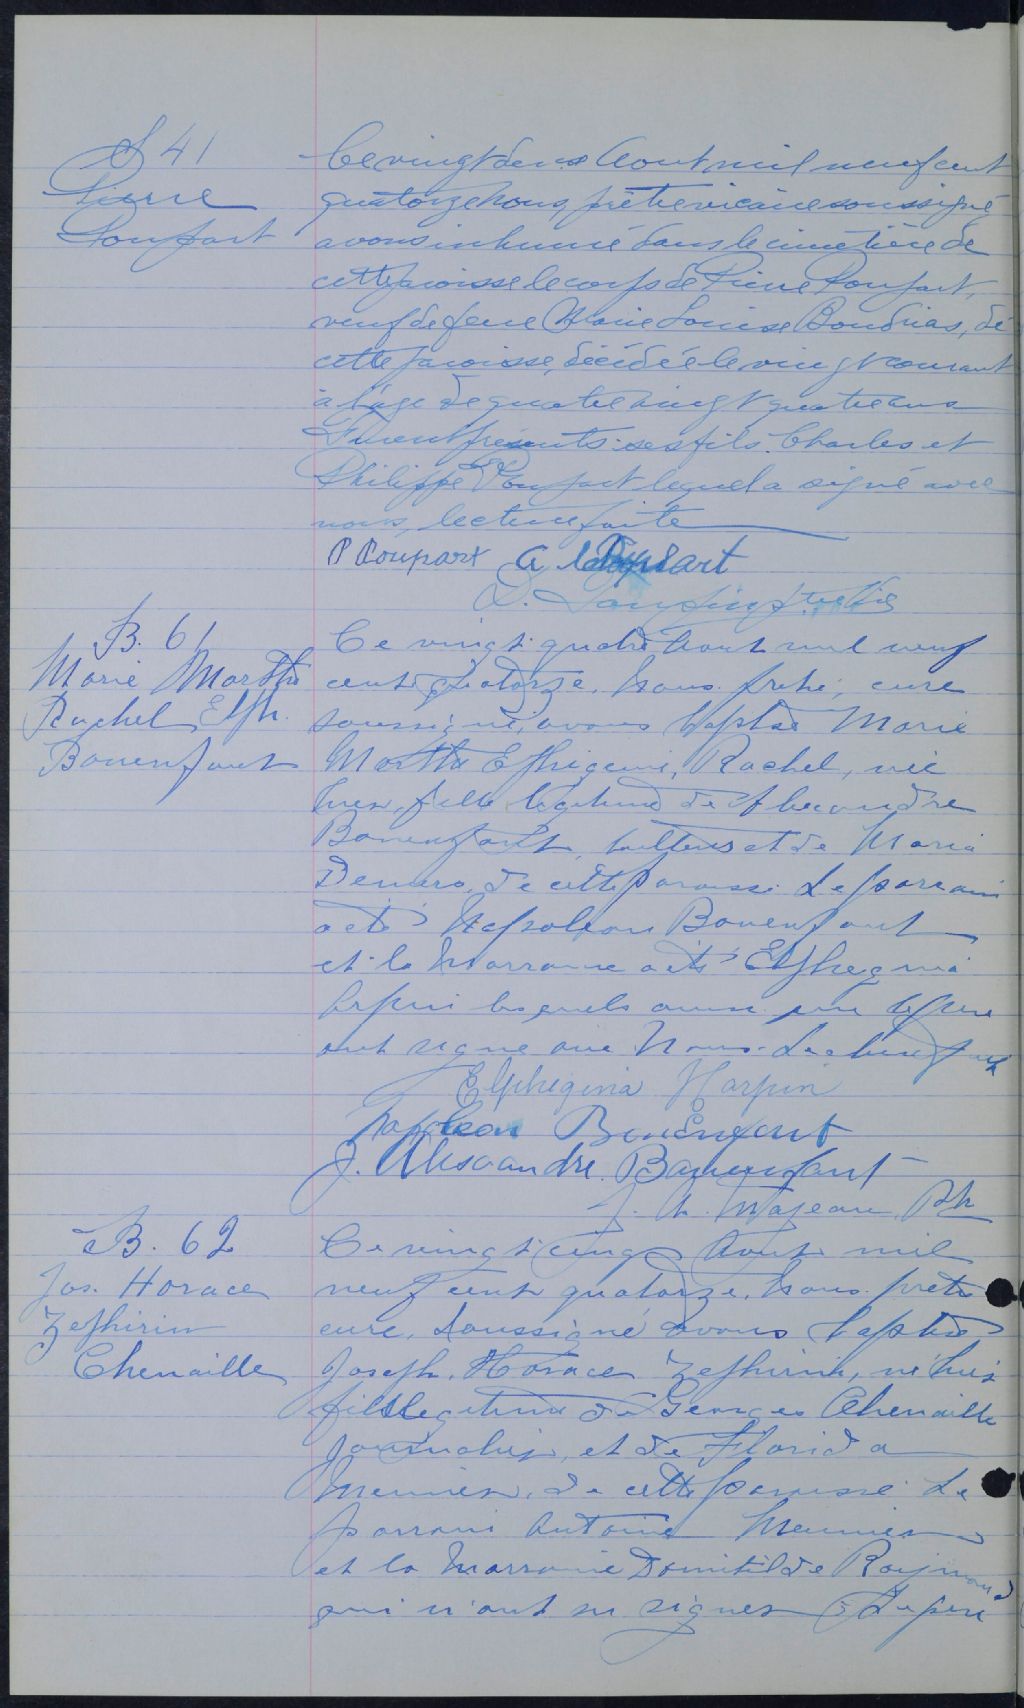 S 41
Pierre
Poupart
Ce vingt deux Aout mil neuf cent
quatorze nous, prêtre vicaire soussigné
avons inhumé dans le cimetière de
cette paroisse le corps de Pierre Poupart,
veuf de feue Marie Louise Boudrias, de
cette paroisse, décédée le vingt courant
à l'âge de quatre vingt quatre ans
Furent présents: ses fils Charles et
Philippe Poupart lequel a signé avec
nous, lecture faite
P Poupart A Poupart
B. 61
Marie Marthe
Rachel Elph.
Bonenfant
Ce vingt quatre Aout mil neuf
cent quatorze. Nous prêtre, curé
soussigné, avons baptisé Marie
Marthe Ephigenie, Rachel, née
hier, fille légitime de Alexandre
Bonenfant, et de Maria
Demers, de cette paroisse. Le parrain
a été Napoléon Bonenfant
et la Marraine a été Elphegina
Harpin lesquels ainsi que le père
ont signé avec Nous. Lecture faite
Elphegina Harpin
Napoleon Bonenfant
J. Alexandre Bonenfant
B. 62
Jos. Horace
Zephirin
Chenaille
Ce vingt cinq Aout mil
neuf cent quatorze. Nous prêtre
curé, soussigné avons baptisé
Joseph, Horace Zephirin, né hier
fils légitime de Georges Chenaille
journalier, et de Florida
Meunier, de cette paroisse. Le
parrain Antoine Meunier
et la Marraine Domitilde Raymond
qui n'ont su signer. Le père